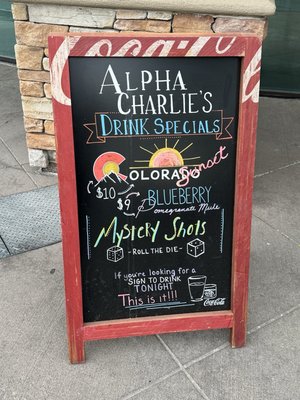 Coca-Cola
ALPHA
CHARLIE'S
DRINK SPECIALS
COLORADO
Sunset
$10
$9
BLUEBERRY
Pomegranate Mule
Mystery Shots
- ROLL THE DIE -
IF you're looking for a
SIGN TO DRINK
TONIGHT
This is it!!!
Coca-Cola